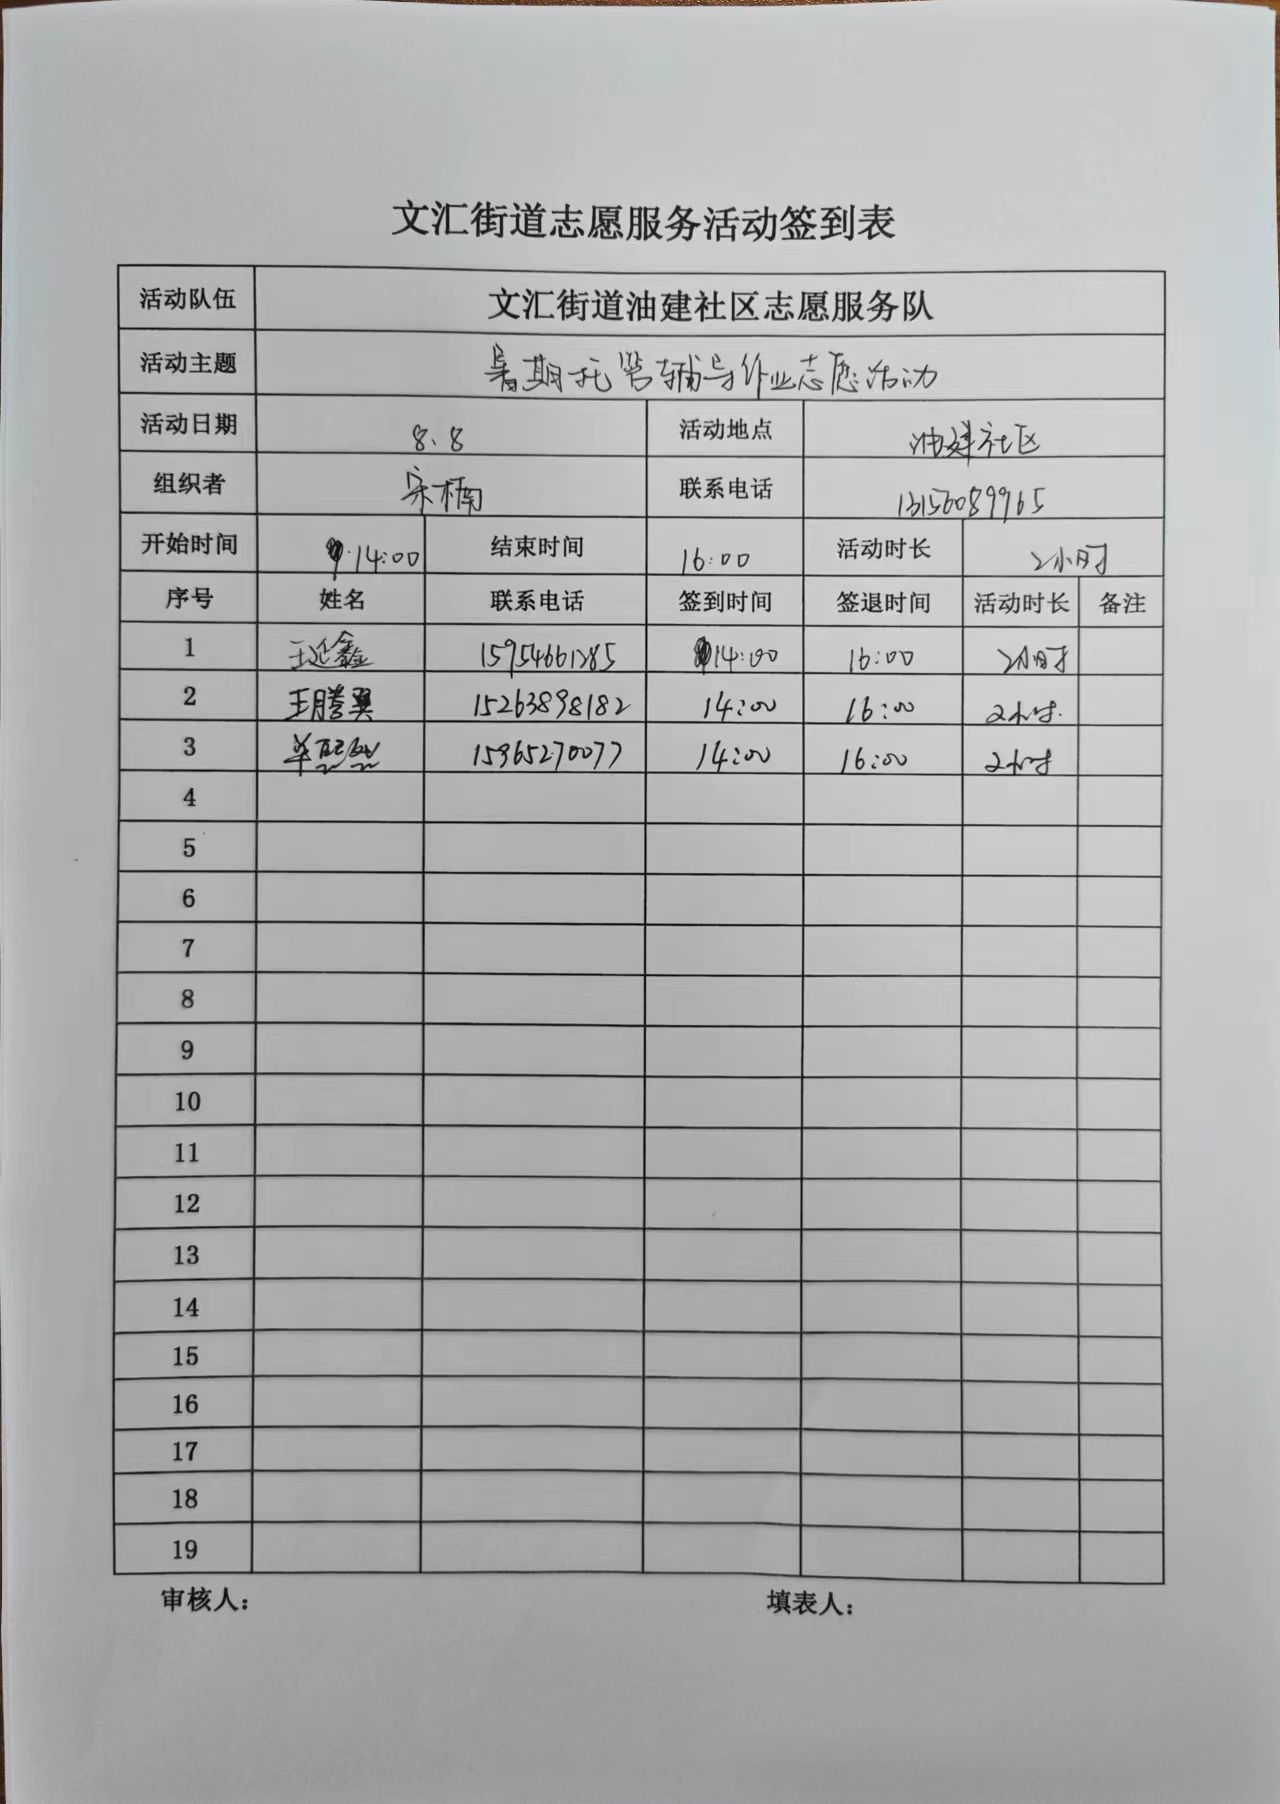 文汇街道志愿服务活动签到表
活动队伍 文汇街道油建社区志愿服务队
活动主题 暑期托管辅导作业志愿活动
活动日期 8.8 活动地点 油建社区
组织者 宋楠 联系电话 13156089965
开始时间 14:00 结束时间 16:00 活动时长 2小时
序号 姓名 联系电话 签到时间 签退时间 活动时长 备注
1 王延鑫 15954661285 14:00 16:00 2小时
2 王腾翼 15263898182 14:00 16:00 2小时.
3 15965270077 14:00 16:00 2小时
4
5
6
7
8
9
10
11
12
13
14
15
16
17
18
19
审核人: 填表人: